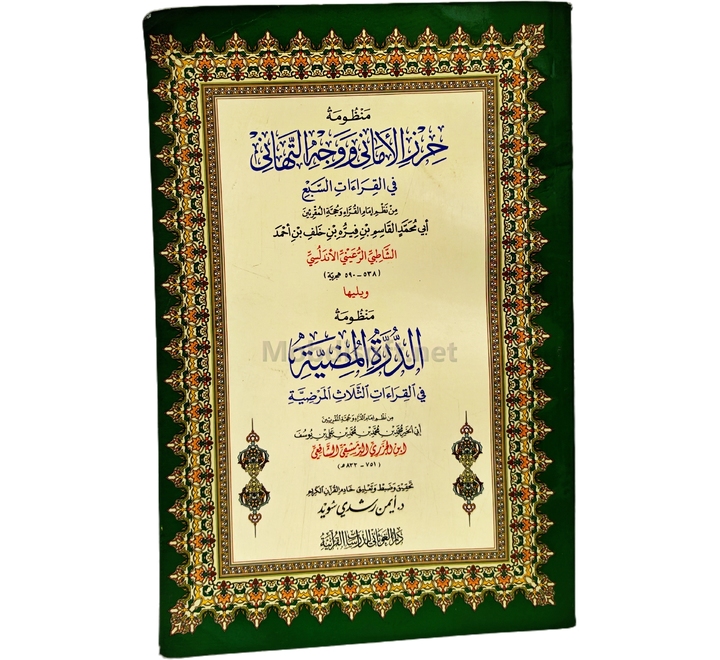 مَنْظُومَةُ
حِرْزِ الْأَمَانِي وَوَجْهِ التَّهَانِي
فِي الْقِرَاءَاتِ السَّبْعِ
مِنْ نَظْمِ إِمَامِ الْقُرَّاءِ وَحُجَّةِ الْمُقْرِئِينَ
أَبِي مُحَمَّدٍ الْقَاسِمِ بْنِ فِيرُّه بْنِ خَلَفِ بْنِ أَحْمَدَ
الشَّاطِبِيِّ الرُّعَيْنِيِّ الْأَنْدَلُسِيِّ
(٥٣٨ - ٥٩٠ هجرية)
ويليها
مَنْظُومَةُ
الدُّرَّةِ الْمُضِيَّةِ
فِي الْقِرَاءَاتِ الثَّلَاثِ الْمَرْضِيَّةِ
مِنْ نَظْمِ إِمَامِ الْقُرَّاءِ وَحُجَّةِ الْمُقْرِئِينَ
أَبِي الْخَيْرِ مُحَمَّدِ بْنِ مُحَمَّدِ بْنِ مُحَمَّدِ بْنِ عَلِيِّ بْنِ يُوسُفَ
ابْنِ الْجَزَرِيِّ الدِّمَشْقِيِّ الشَّافِعِيِّ
(٧٥١ - ٨٣٣ هـ)
تحقيق وضبط وتعليق خادم القرآن الكريم
د. أيمن رشدي سُوَيْد
دار الغوثاني للدراسات القرآنية